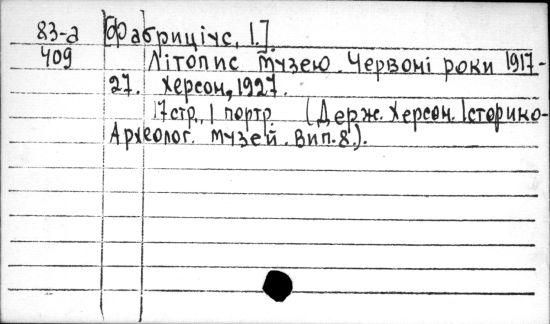 83-а [Фабриціус, І.]
409 Літопис музею. Червоні роки 1917-
27. Херсон, 1927.
17 стр., 1 портр. (Держ. Херсон. Історико-
Археолог. музей. Вип. 8.).